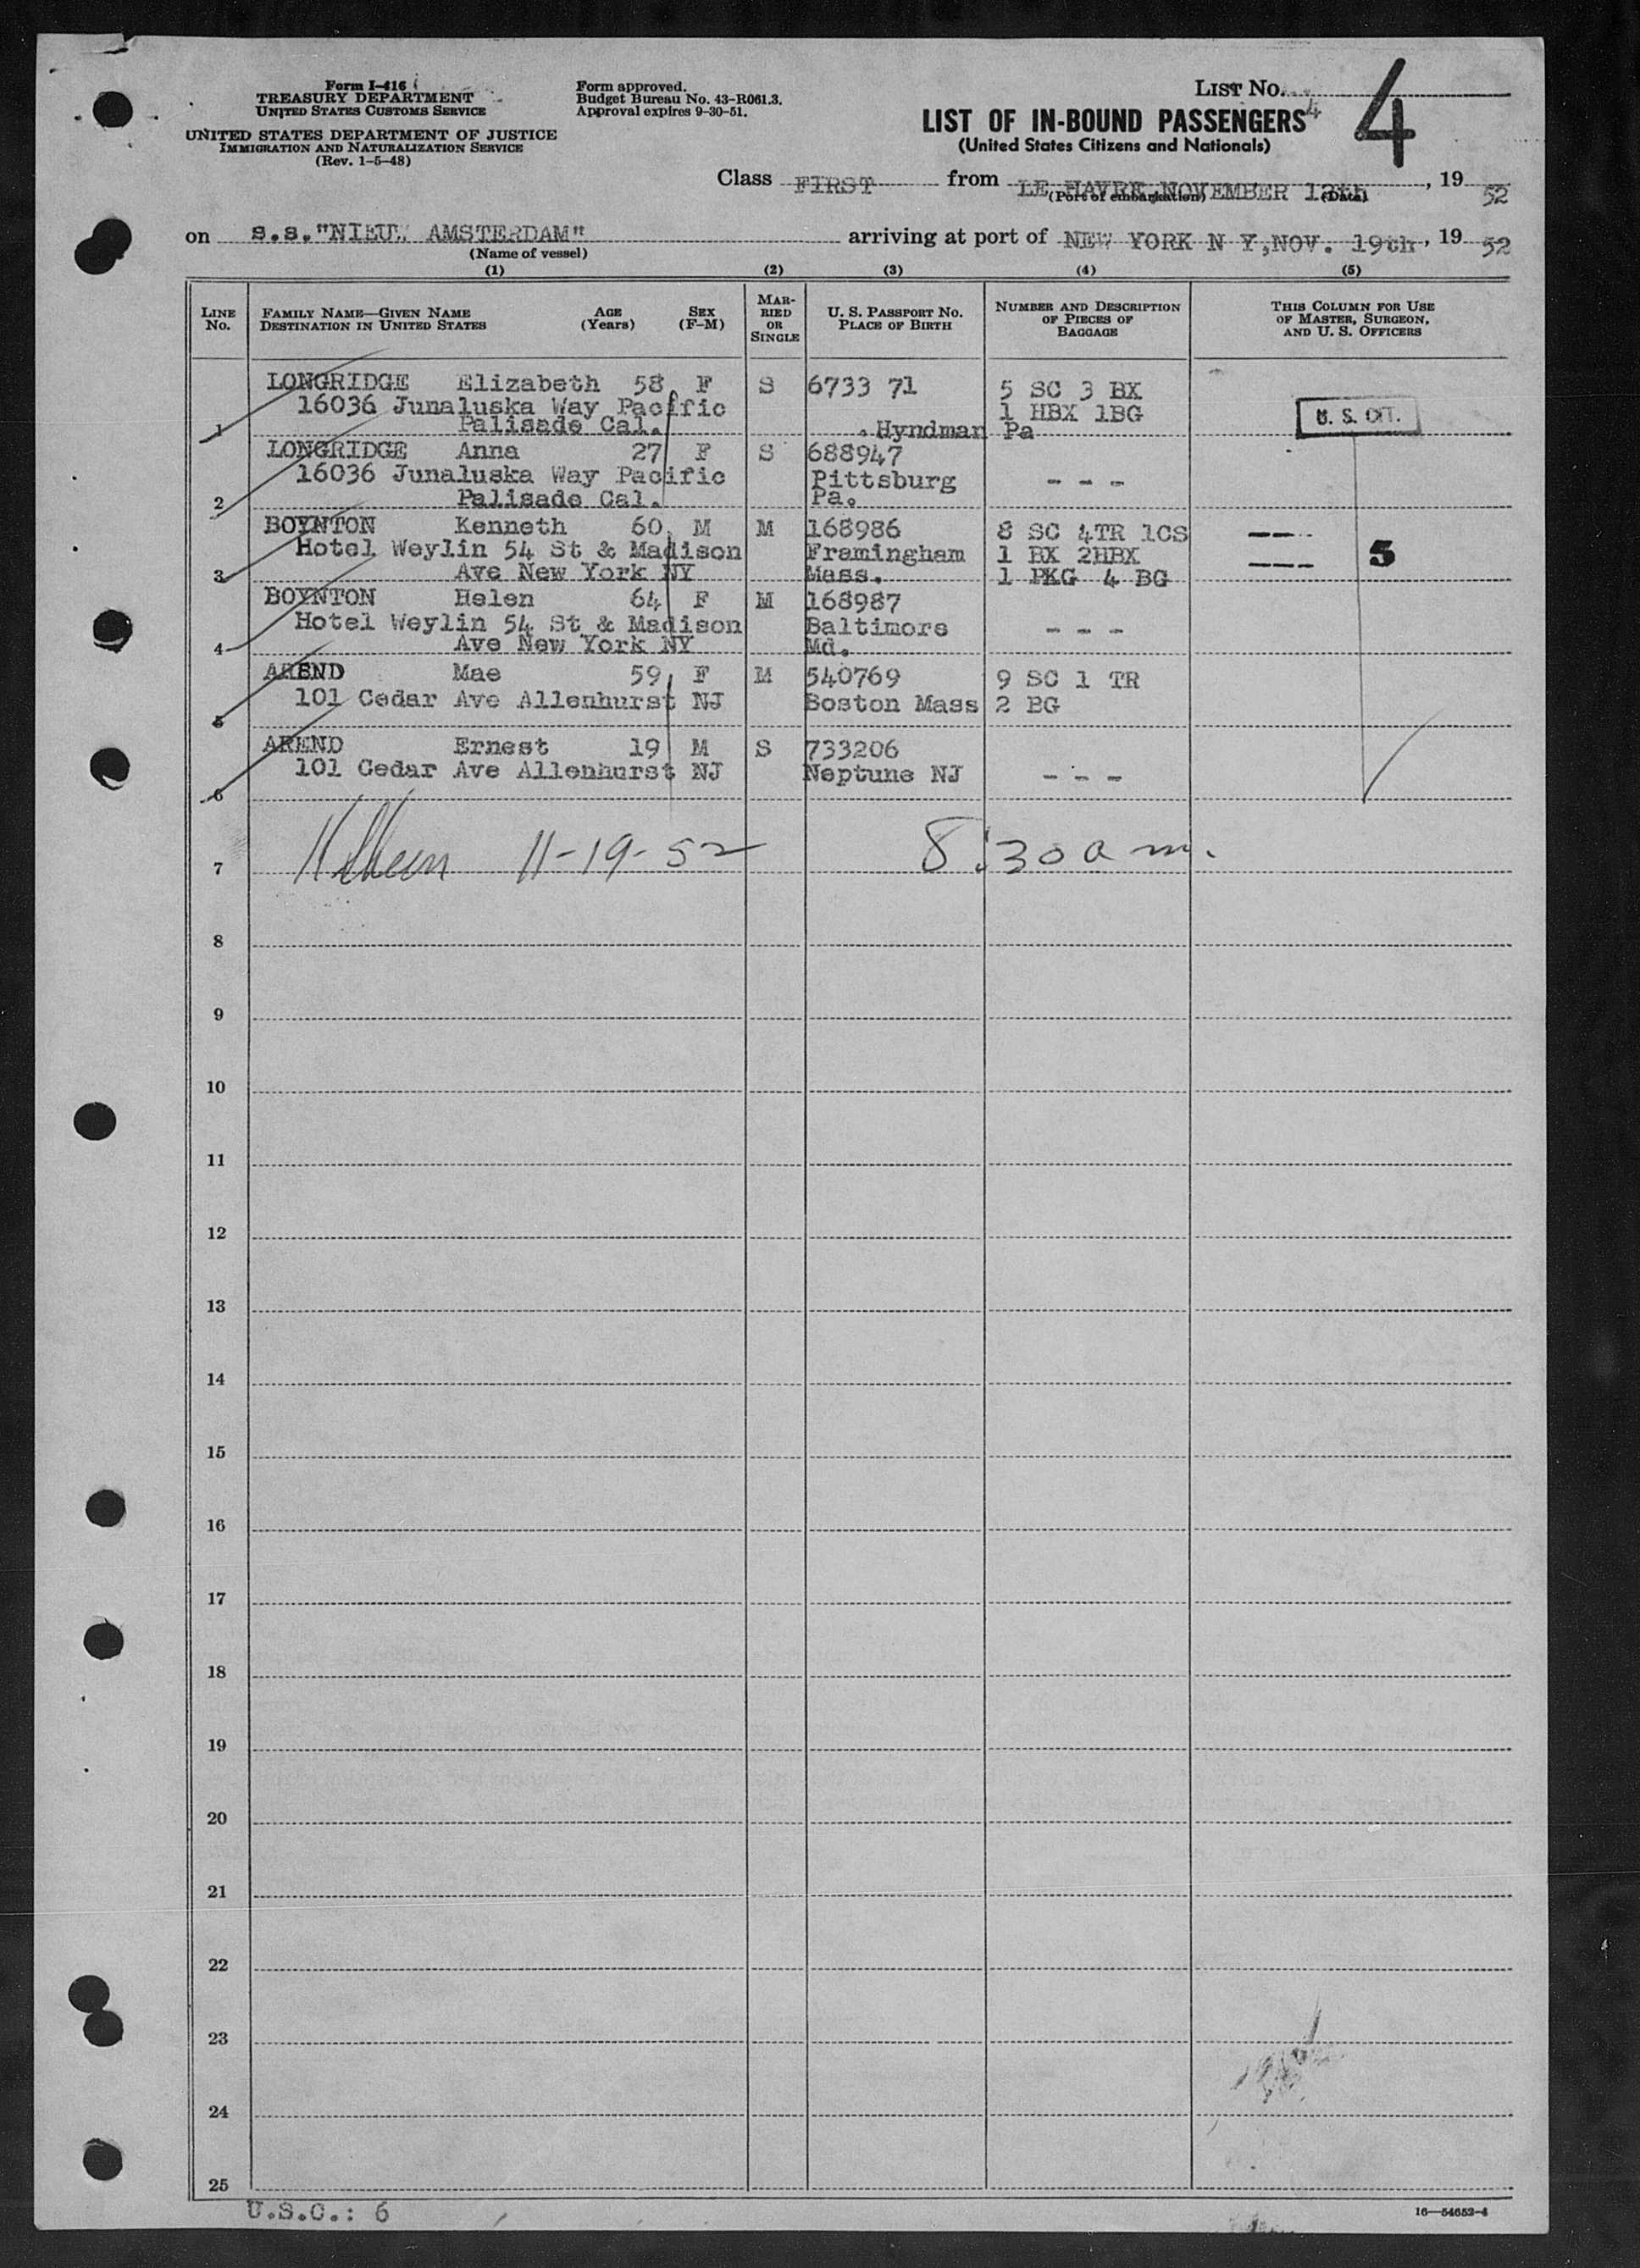 Form I-416
TREASURY DEPARTMENT
UNITED STATES CUSTOMS SERVICE
UNITED STATES DEPARTMENT OF JUSTICE
IMMIGRATION AND NATURALIZATION SERVICE
(Rev. 1-5-48)
Form approved.
Budget Bureau No. 43-R061.3.
Approval expires 9-30-51.
LIST No. 4
4
LIST OF IN-BOUND PASSENGERS
(United States Citizens and Nationals)
Class FIRST from LE HAVRE, NOVEMBER 12th, 19 52
(Port of embarkation) (Date)
on s.s."NIEUW AMSTERDAM" arriving at port of NEW YORK N Y, NOV. 19th, 19 52
(Name of vessel)
(1) (2) (3) (4) (5)
LINE No. FAMILY NAME—GIVEN NAME DESTINATION IN UNITED STATES AGE (Years) SEX (F-M) MARRIED OR SINGLE U. S. PASSPORT No. PLACE OF BIRTH NUMBER AND DESCRIPTION OF PIECES OF BAGGAGE THIS COLUMN FOR USE OF MASTER, SURGEON, AND U. S. OFFICERS
LONGRIDGE Elizabeth 58 F S 6733 71 5 SC 3 BX
16036 Junaluska Way Pacific 1 HBX 1BG U. S. CIT.
1 Palisade Cal. . Hyndman Pa
LONGRIDGE Anna 27 F S 688947
16036 Junaluska Way Pacific Pittsburg - - -
2 Palisade Cal. Pa.
BOYNTON Kenneth 60 M M 168986 8 SC 4TR 1CS
Hotel Weylin 54 St & Madison Framingham 1 BX 2HBX 5
3 Ave New York NY Mass. 1 PKG 4 BG
BOYNTON Helen 64 F M 168987
Hotel Weylin 54 St & Madison Baltimore - - -
4 Ave New York NY Md.
AREND Mae 59 F M 540769 9 SC 1 TR
101 Cedar Ave Allenhurst NJ Boston Mass 2 BG
5
AREND Ernest 19 M S 733206
101 Cedar Ave Allenhurst NJ Neptune NJ - - -
6
7 11-19-52 8:30 a m.
8
9
10
11
12
13
14
15
16
17
18
19
20
21
22
23
24
25
U.S.C.: 6
16—54652-4